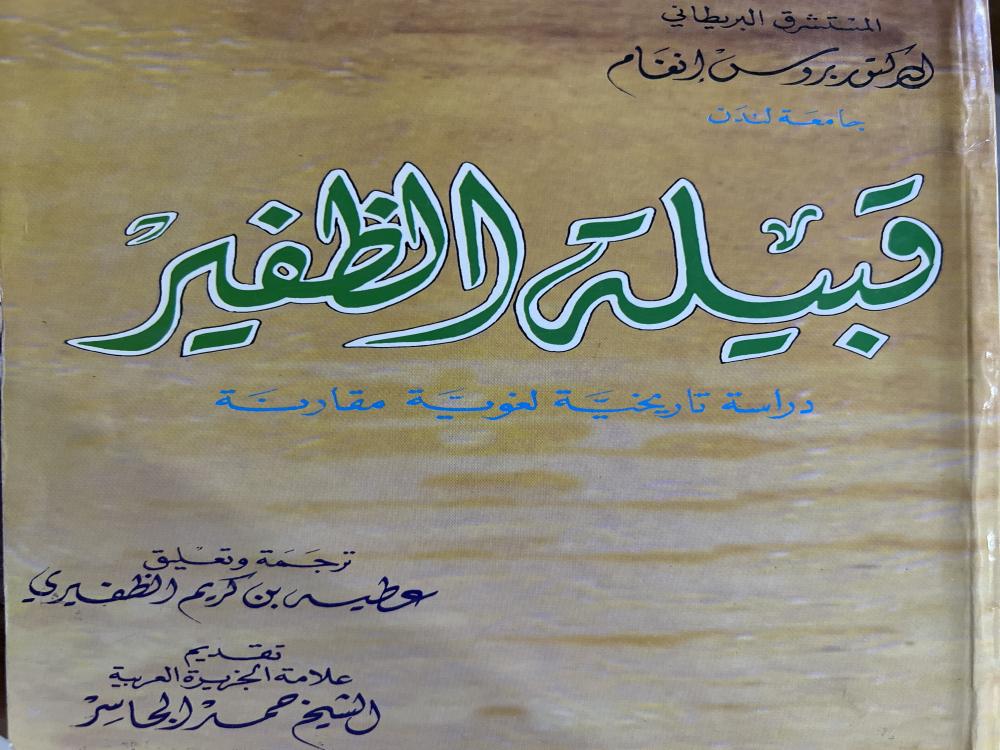 المستشرق البريطاني
الدكتور بروس إنغام
جامعة لندن
قبيلة الظفير
دراسة تاريخيّة لغويّة مقارنة
ترجمة وتعليق
عطيه بن كريم الظفيري
تقديم
علامة الجزيرة العربية
الشيخ حمد الجاسر